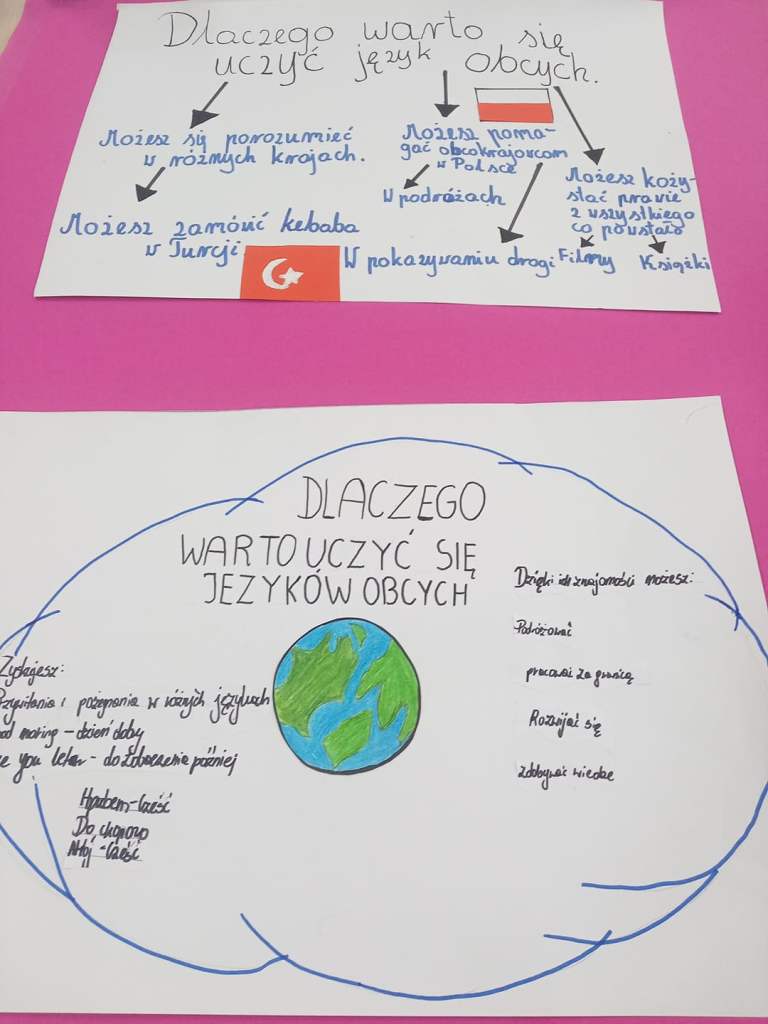 Dlaczego warto się
uczyć język obcych.
Możesz się porozumieć
w różnych krajach.
Możesz zamówić kebaba
w Turcji
Możesz poma-
gać obcokrajowcom
w Polsce
W podróżach
W pokazywaniu drogi
Możesz koży-
stać prawie
z wszystkiego
co powstało
Filmy
Książki
DLACZEGO
WARTO UCZYĆ SIĘ
JEZYKÓW OBCYCH
Dzięki ich znajomości możesz:
Podróżować
pracować za granicą
Rozwijać się
zdobywać wiedze
Zyskujesz:
Przywitania i pożegnania w różnych językach
mornig - dzień doby
you leter - do zobaczenia później
cześć
Do
cześć